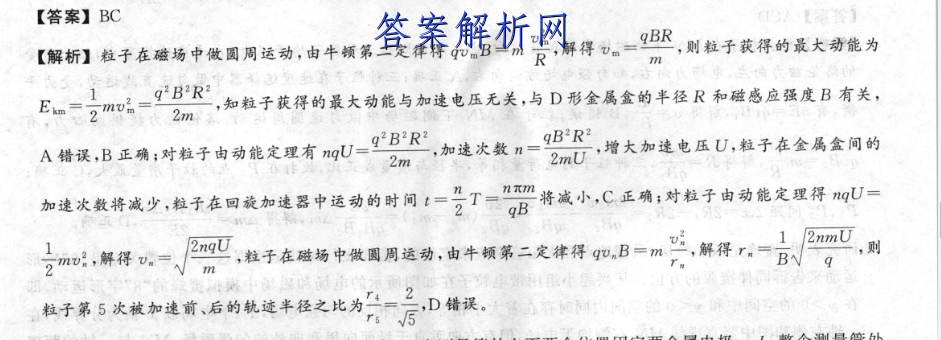 【答案】BC
答案解析网
【解析】粒子在磁场中做圆周运动,由牛顿第二定律得 qv_mB=m v_m²/R,解得 v_m=qBR/m,则粒子获得的最大动能为
E_km=1/2 mv_m²=q²B²R²/2m,知粒子获得的最大动能与加速电压无关,与 D 形金属盒的半径 R 和磁感应强度 B 有关,
A 错误,B 正确;对粒子由动能定理有 nqU=q²B²R²/2m,加速次数 n=qB²R²/2mU,增大加速电压 U,粒子在金属盒间的
加速次数将减少,粒子在回旋加速器中运动的时间 t=n/2 T=nπm/qB 将减小,C 正确;对粒子由动能定理得 nqU=
1/2 mv_n²,解得 v_n=√(2nqU/m),粒子在磁场中做圆周运动,由牛顿第二定律得 qv_nB=m v_n²/r_n,解得 r_n=1/B √(2nmU/q),则
粒子第 5 次被加速前、后的轨迹半径之比为 r_4/r_5=2/√5,D 错误。